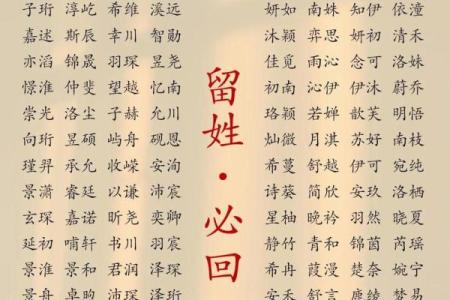 子珩 淳屹 希维 溪远
嘉述 斯辰 幸川 智勋
亦滔 锦晟 羽琛 昱尧
憬淮 仲斐 望越 忆南
崇光 洛尘 子赫 允川
向珩 昱硕 屿舟 砚恩
瑾羿 承允 收嵘 安洵
景潇 睿廷 以谦 沛宸
玄琛 嘉诺 昕尧 奕卿
延初 哺轩 书川 羽宸
景淮 景和 君润 泽琛
景舟 卓昀
留姓·必回
妍如 南姝 知伊 依潼
沐颖 弈思 妍初 清禾
佳觅 雨沁 念可 洛妍
初南 沁伊 歆芙 蔚乔
珞颖 若婵 苏好 明悟
灿微 月淇 可初 南枝
希蔓 舒越 伊安 宛纯
诗葵 简欣 玖羽 洛栖
星柚 晚衿 然 晓夏
静竹 青和 锦茵 芮瑶
希冉 葭漫 楚奈 婉宁
安禾 舒言